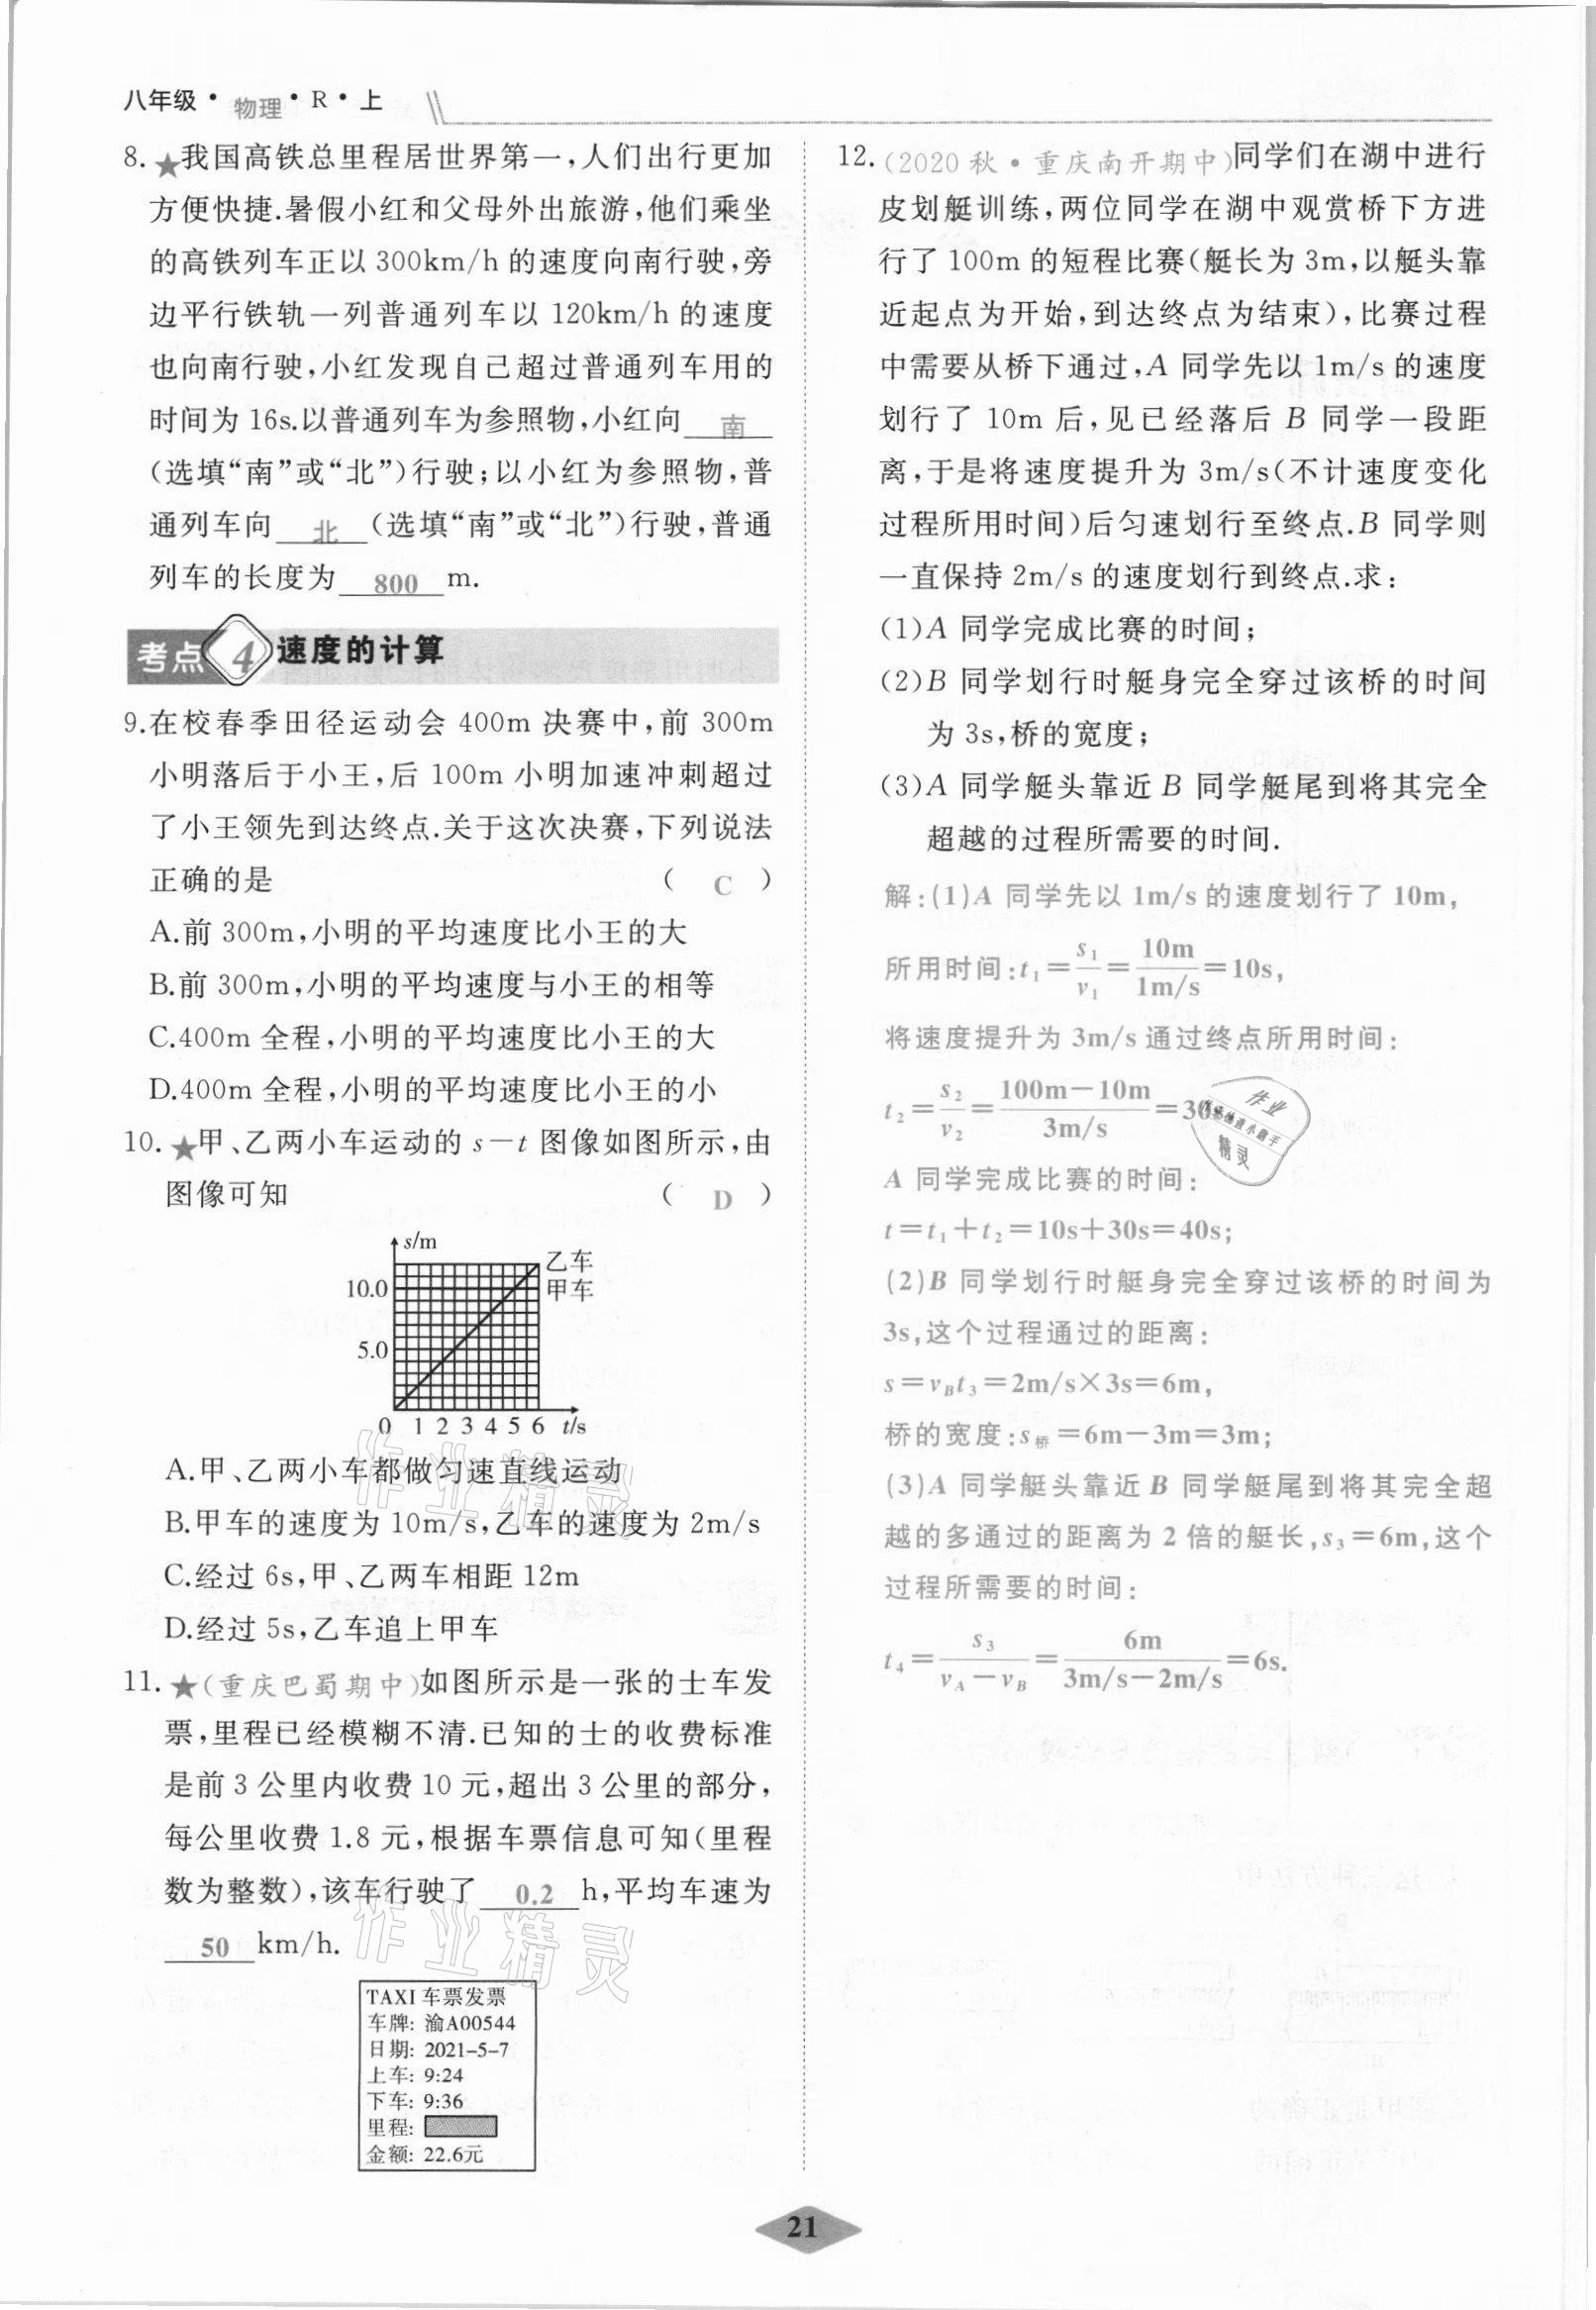 八年级·物理·R·上
8.★我国高铁总里程居世界第一,人们出行更加
方便快捷.暑假小红和父母外出旅游,他们乘坐
的高铁列车正以300km/h的速度向南行驶,旁
边平行铁轨一列普通列车以120km/h的速度
也向南行驶,小红发现自己超过普通列车用的
时间为16s.以普通列车为参照物,小红向 南
(选填“南”或“北”)行驶;以小红为参照物,普
通列车向 北 (选填“南”或“北”)行驶,普通
列车的长度为 800 m.
考点4 速度的计算
9.在校春季田径运动会400m决赛中,前300m
小明落后于小王,后100m小明加速冲刺超过
了小王领先到达终点.关于这次决赛,下列说法
正确的是 ( C )
A.前300m,小明的平均速度比小王的大
B.前300m,小明的平均速度与小王的相等
C.400m全程,小明的平均速度比小王的大
D.400m全程,小明的平均速度比小王的小
10.★甲、乙两小车运动的s-t图像如图所示,由
图像可知 ( D )
s/m
乙车
10.0 甲车
5.0
0 1 2 3 4 5 6 t/s
A.甲、乙两小车都做匀速直线运动
B.甲车的速度为10m/s,乙车的速度为2m/s
C.经过6s,甲、乙两车相距12m
D.经过5s,乙车追上甲车
11.★(重庆巴蜀期中)如图所示是一张的士车发
票,里程已经模糊不清.已知的士的收费标准
是前3公里内收费10元,超出3公里的部分,
每公里收费1.8元,根据车票信息可知(里程
数为整数),该车行驶了 0.2 h,平均车速为
50 km/h.
TAXI车票发票
车牌: 渝A00544
日期: 2021-5-7
上车: 9:24
下车: 9:36
里程:
金额: 22.6元
12.(2020秋·重庆南开期中)同学们在湖中进行
皮划艇训练,两位同学在湖中观赏桥下方进
行了100m的短程比赛(艇长为3m,以艇头靠
近起点为开始,到达终点为结束),比赛过程
中需要从桥下通过,A同学先以1m/s的速度
划行了10m后,见已经落后B同学一段距
离,于是将速度提升为3m/s(不计速度变化
过程所用时间)后匀速划行至终点.B同学则
一直保持2m/s的速度划行到终点.求:
(1)A同学完成比赛的时间;
(2)B同学划行时艇身完全穿过该桥的时间
为3s,桥的宽度;
(3)A同学艇头靠近B同学艇尾到将其完全
超越的过程所需要的时间.
解:(1)A同学先以1m/s的速度划行了10m,
所用时间:t₁=s₁/v₁=10m/1m/s=10s,
将速度提升为3m/s通过终点所用时间:
t₂=s₂/v₂=100m-10m/3m/s=30s
A同学完成比赛的时间:
t=t₁+t₂=10s+30s=40s;
(2)B同学划行时艇身完全穿过该桥的时间为
3s,这个过程通过的距离:
s=v_Bt₃=2m/s×3s=6m,
桥的宽度:s桥=6m-3m=3m;
(3)A同学艇头靠近B同学艇尾到将其完全超
越的多通过的距离为2倍的艇长,s₃=6m,这个
过程所需要的时间:
t₄=s₃/v_A-v_B=6m/3m/s-2m/s=6s.
作业
精灵
作业精灵
作业精灵
21